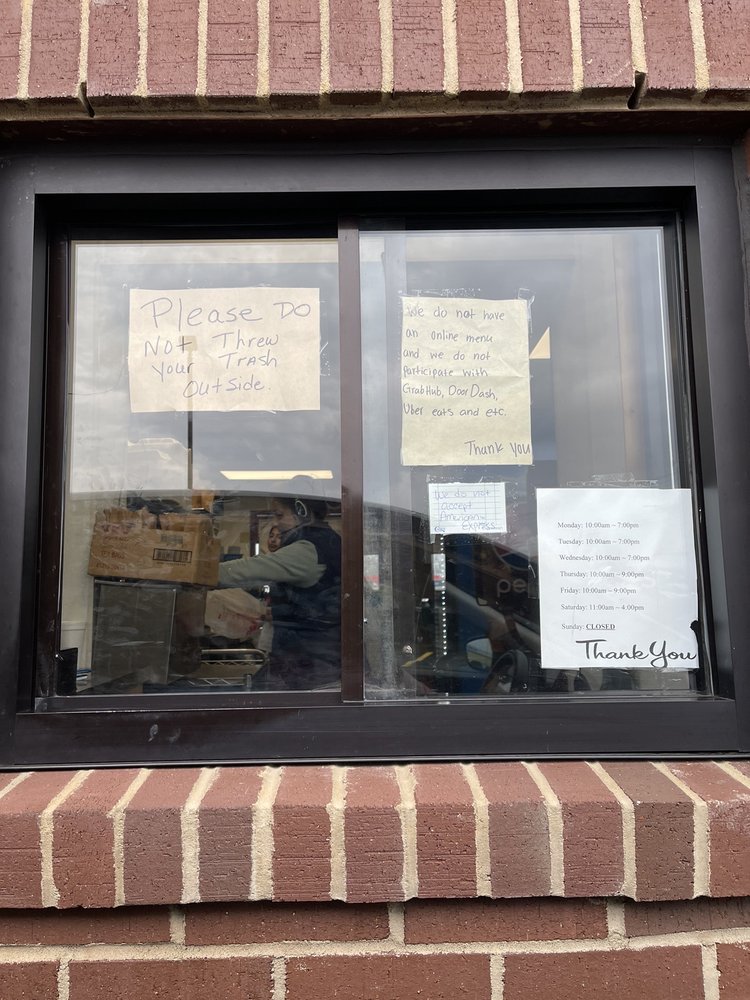 Please Do
Not Threw
Your Trash
Outside.
We do not have
an online menu
and we do not
participate with
GrabHub, DoorDash,
Uber eats and etc.
Thank you
We do not
accept
American
Express
Monday: 10:00am ~ 7:00pm
Tuesday: 10:00am ~ 7:00pm
Wednesday: 10:00am ~ 7:00pm
Thursday: 10:00am ~ 9:00pm
Friday: 10:00am ~ 9:00pm
Saturday: 11:00am ~ 4:00pm
Sunday: CLOSED
Thank You